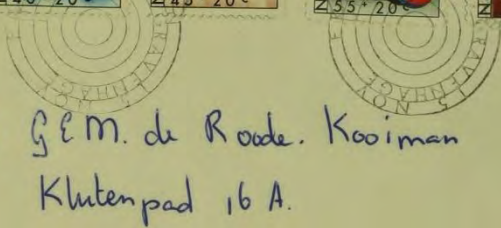 40+20c
45+20c
N 55+20c
N
'S-GRAVENHAGE
'S-GRAVENHAGE 13 NOV
G E M. de Roode. Kooiman
Klutenpad 16 A.